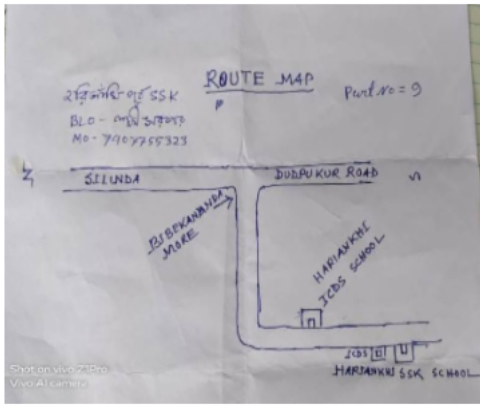 ROUTE MAP
Part No = 9
SSK
BLO -
MO - 7907755323
SILINDA
DUDPUKUR ROAD
BIBEKANANDA
MORE
HARIANKHI
ICDS SCHOOL
ICDS
HARIANKHI SSK SCHOOL
Shot on vivo Z1Pro
Vivo AI camera